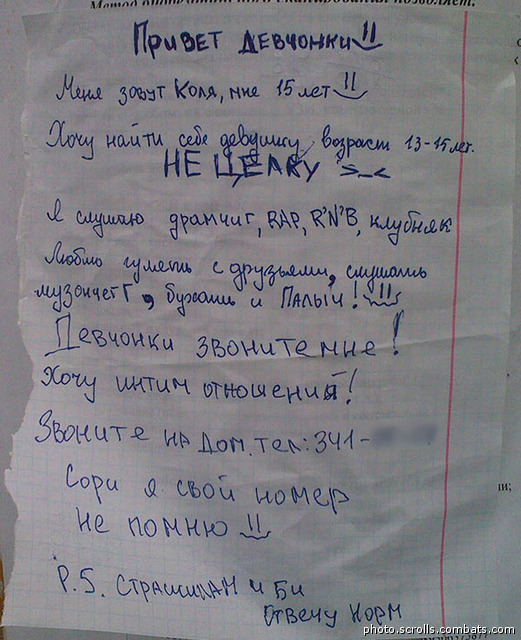 Метод
позволяет.
ПРИВЕТ ДЕВЧОНКИ
Меня зовут Коля, мне 15 лет
Хочу найти себе девушку, возраст 13-15 лет.
НЕ ЦЕЛКУ >_<
Я слушаю драмчиг, RAP, R'N'B, клубняк
Люблю гулять с друзьями, слушать
музончегГ, бухать и ПАЛЫЧ!
Девчонки звоните мне!
Хочу интим отношений!
Звоните на Дом. тел: 341-
Сори я свой номер
Не помню
P.S. СТРАШИЛАМ и Би
Отвечу НОРМ
photo.scrolls.combats.com